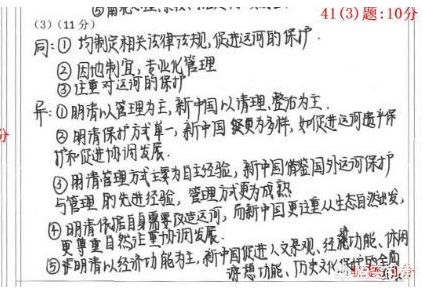 41(3)题:10分
(3)(11分)
同:① 均制定相关法律法规,促进运河的保护.
② 因地制宜,专业化管理
③ 注重对运河的保护
异:① 明清以管理为主,新中国以清理、整治为主.
② 明清保护方式单一,新中国更为多样,如促进运河遗产保
护和促进协调发展.
③ 明清管理方式主要为自主经验,新中国借鉴国外运河保护
与管理的先进经验,管理方式更为成熟
④ 明清依据自身需要改造运河,而新中国更注重从生态自然出发,
更尊重自然注重协调发展.
⑤ 明清以经济功能为主,新中国促进人文景观、经济功能、休闲
功能、历史文化保护的全
分